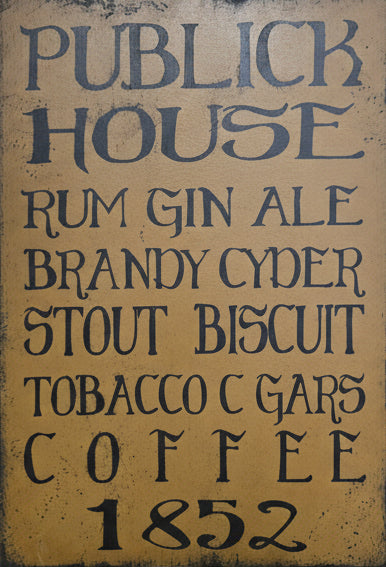 PUBLICK
HOUSE
RUM GIN ALE
BRANDY CYDER
STOUT BISCUIT
TOBACCO C GARS
COFFEE
1852